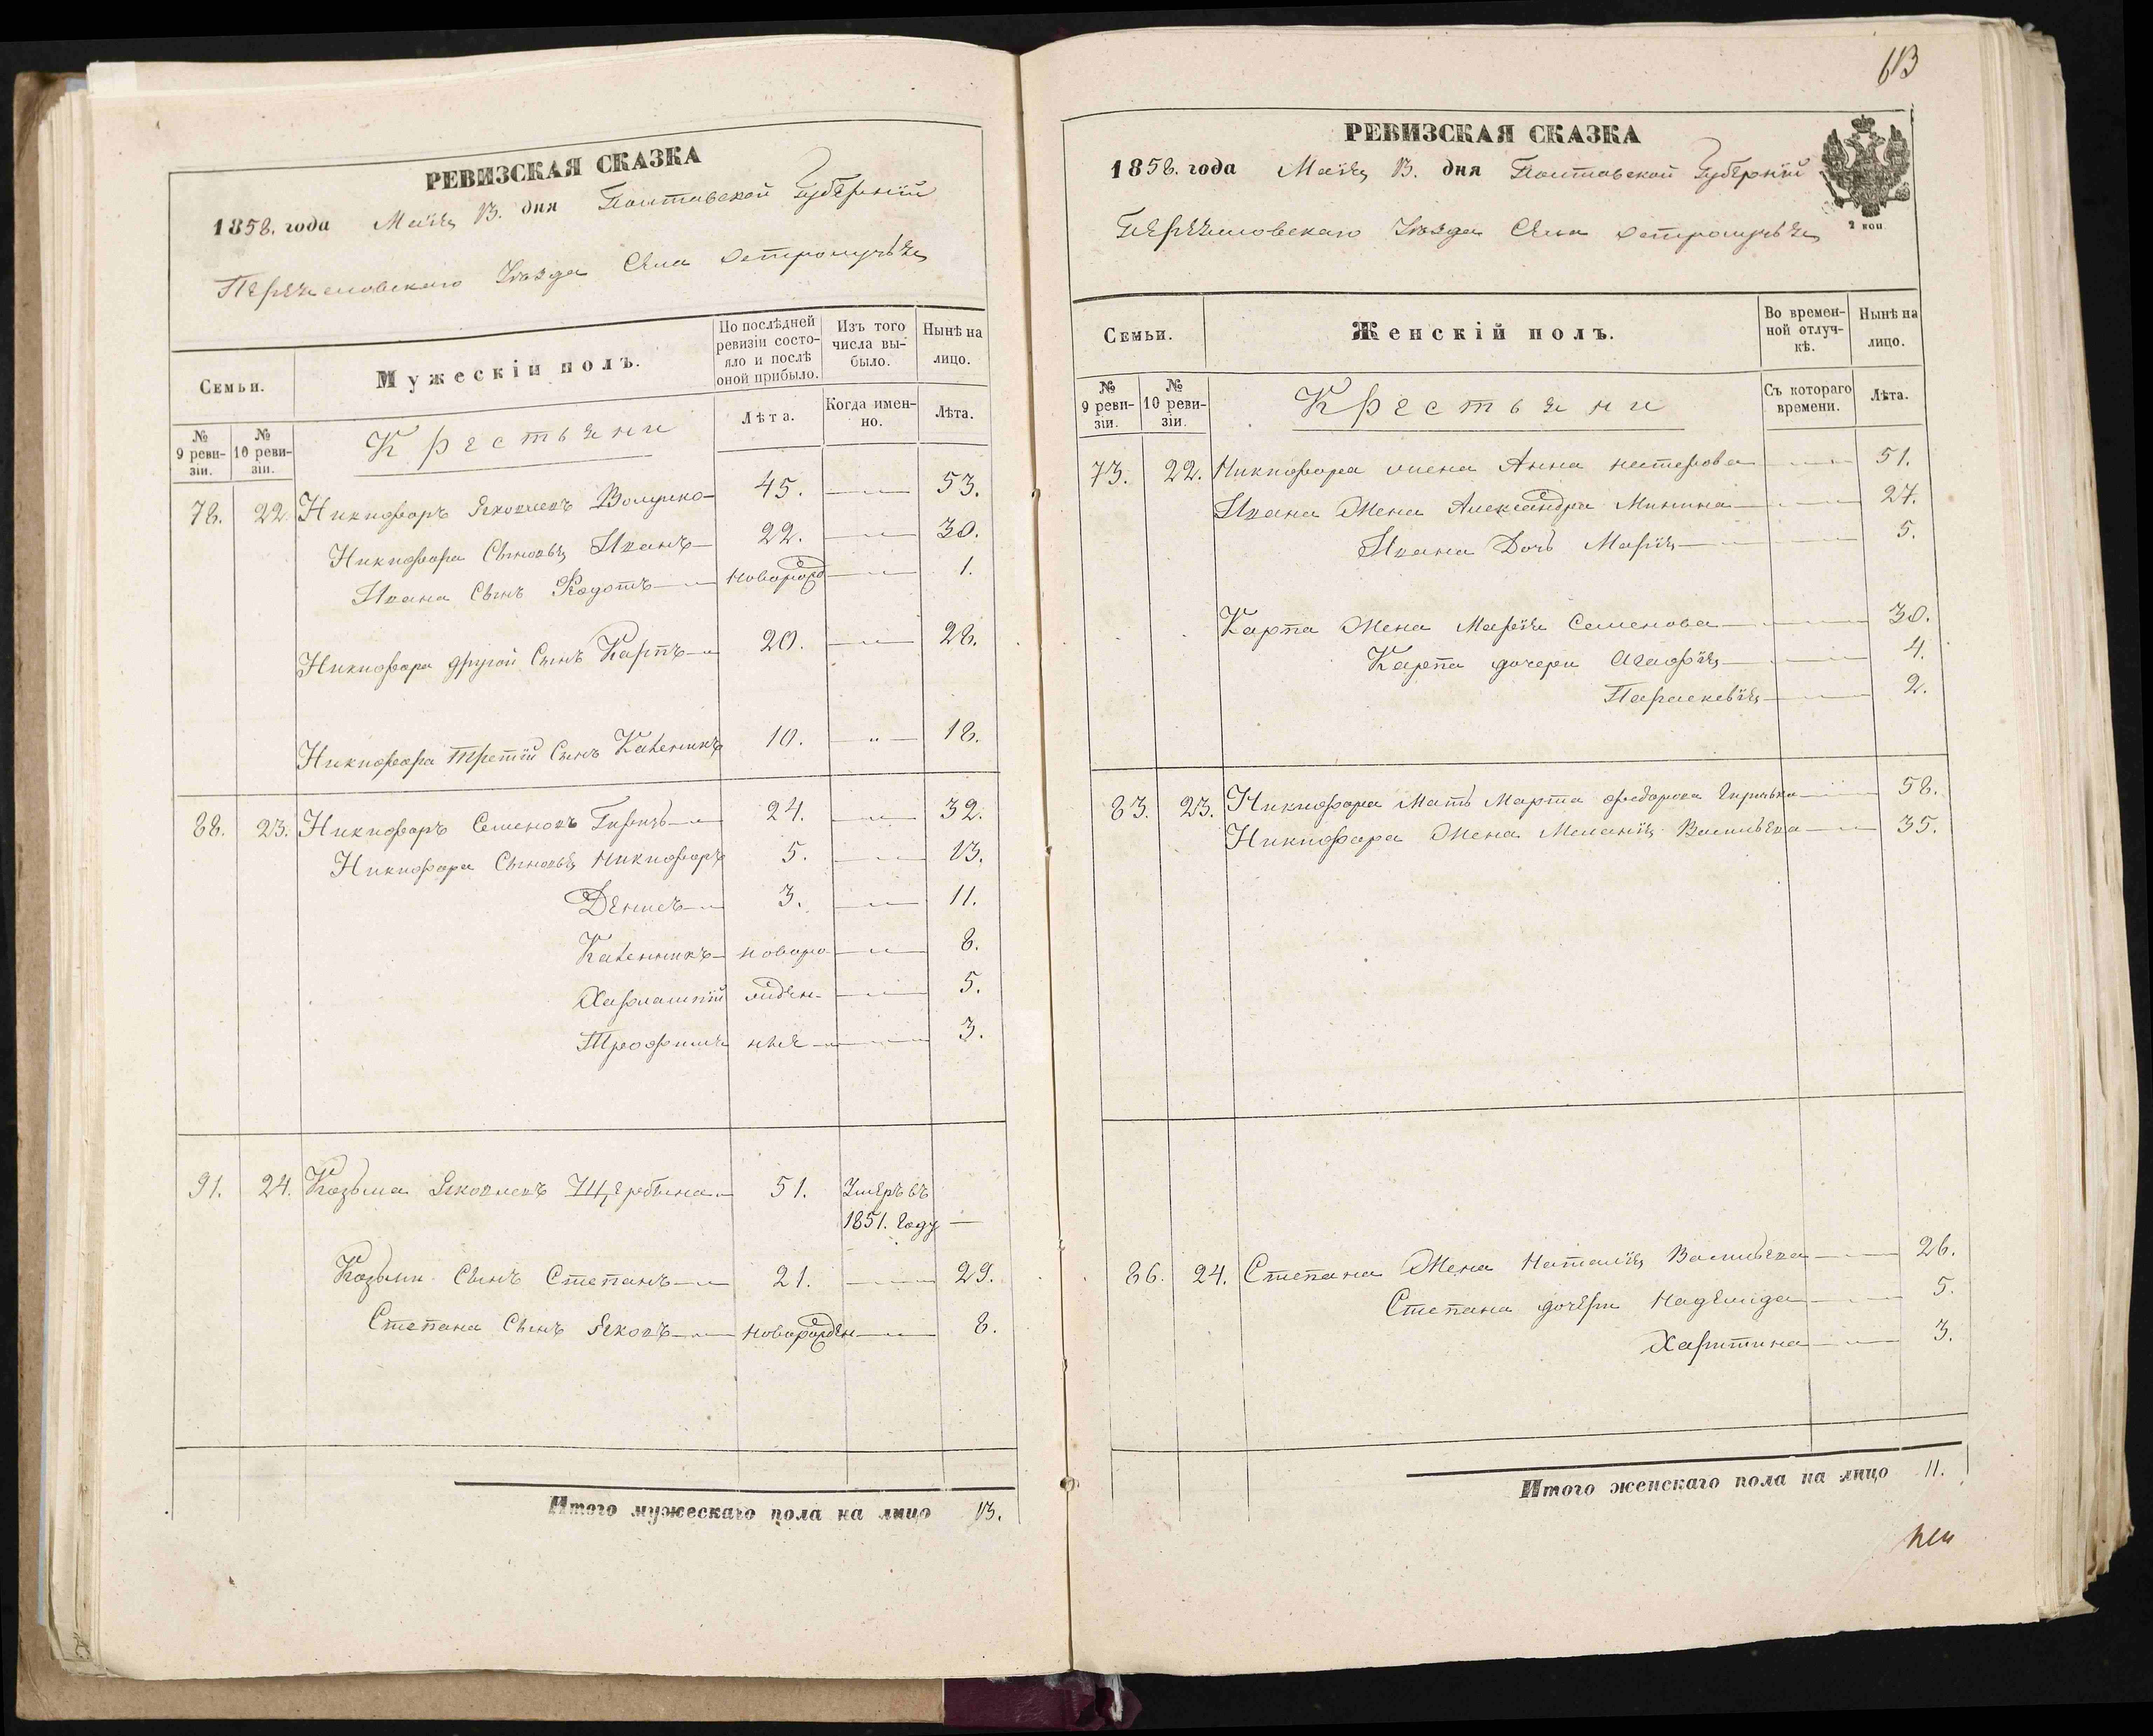 РЕВИЗСКАЯ СКАЗКА
1858. года Маія 13. дня Полтавской Губерніи
Переяславскаго Уѣзда Села
Семьи.
Мужескій полъ.
По послѣдней ревизіи состояло и послѣ оной прибыло.
Изъ того числа выбыло.
Нынѣ на лицо.
№ 9 ревизіи.
№ 10 ревизіи.
Крестьяни
Лѣта.
Когда именно.
Лѣта.
78. 22. Никифоръ Яковлевъ 45. — 53.
Никифора Сыновья Иванъ 22. — 30.
Ивана Сынъ Федотъ новорожд — 1.
Никифора другой Сынъ Карпъ 20. — 28.
Никифора Третій Сынъ 10. — 18.
88. 23. Никифоръ Семеновъ 24. — 32.
Никифора Сыновья Никифоръ 5. — 13.
Денисъ 3. — 11.
новоро- — 8.
Харлампій жден- — 5.
Трофимъ ныя — 3.
91. 24. Козьма Яковлевъ Щербина 51. Умеръ въ
1851. Году —
Козьми Сынъ Степанъ 21. — 29.
Степана Сынъ Яковъ новорожден — 8.
Итого мужескаго пола на лицо 13.
613
РЕВИЗСКАЯ СКАЗКА
1858. года Маія 13. дня Полтавской Губерніи
2 коп
Переяславскаго Уѣзда Села
Семьи.
Женскій полъ.
Во временной отлучкѣ.
Нынѣ на лицо.
№ 9 ревизіи.
№ 10 ревизіи.
Крестьяни
Съ котораго времени.
Лѣта.
73. 22. Никифора жена Анна нестерова — 51.
Ивана Жена Александра Минина — 27.
Ивана Дочь Марія — 5.
Карпа Жена Марія Семенова — 30.
Карпа дочери Агафія — 4.
Параскевія — 2.
83. 23. Никифора Мать Марта федорова — 58.
Никифора Жена Меланія Васильева — 35.
86. 24. Степана Жена Наталія Васильева — 26.
Степана дочери Надежда — 5.
Харитина — 3.
Итого женскаго пола на лицо 11.